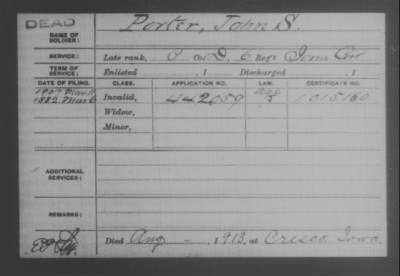 DEAD
NAME OF SOLDIER: Porter, John S.
SERVICE: Late rank, Co. D, 6 Reg't Iowa Cav
TERM OF SERVICE: Enlisted , 1 Discharged , 1
DATE OF FILING. CLASS. APPLICATION NO. LAW. CERTIFICATE NO.
1907 Mar 11
1882 Mar 6 Invalid, 442059 1015160
Widow,
Minor,
ADDITIONAL SERVICES:
REMARKS:
Died Aug – , 1913, at Cresco Iowa